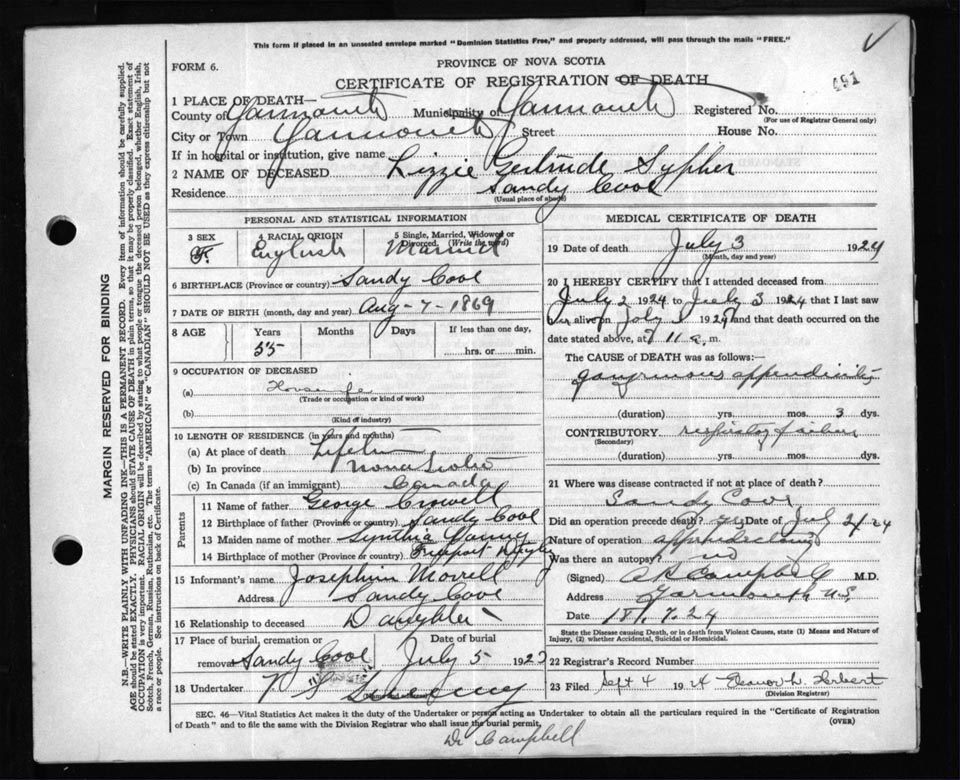 This form if placed in an unsealed envelope marked "Dominion Statistics Free," and properly addressed, will pass through the mails "FREE."
FORM 6.
PROVINCE OF NOVA SCOTIA
CERTIFICATE OF REGISTRATION OF DEATH
491
1 PLACE OF DEATH—
County of Yarmouth Municipality of Yarmouth Registered No.
(For use of Registrar General only)
City or Town Yarmouth Street House No.
If in hospital or institution, give name
2 NAME OF DECEASED Lizzie Gertrude Sypher
Residence Sandy Cove
(Usual place of abode)
PERSONAL AND STATISTICAL INFORMATION
3 SEX 4 RACIAL ORIGIN 5 Single, Married, Widowed or Divorced. (Write the word)
F. English Married
6 BIRTHPLACE (Province or country) Sandy Cove
7 DATE OF BIRTH (month, day and year) Aug-7-1869
8 AGE Years Months Days If less than one day,
55 hrs. or min.
9 OCCUPATION OF DECEASED
(a) Housewife
(Trade or occupation or kind of work)
(b)
(Kind of industry)
10 LENGTH OF RESIDENCE (in years and months)
(a) At place of death
(b) In province Nova Scotia
(c) In Canada (if an immigrant) Canada
Parents
11 Name of father George Crowell
12 Birthplace of father (Province or country) Sandy Cove
13 Maiden name of mother Synthia
14 Birthplace of mother (Province or Country) Freeport Digby
15 Informant's name Josephine Morrell
Address Sandy Cove
16 Relationship to deceased Daughter
17 Place of burial, cremation or removal Date of burial
Sandy Cove July 5 1923
18 Undertaker V S Sweeny
MEDICAL CERTIFICATE OF DEATH
19 Date of death July 3 1924
(Month, day and year)
20 I HEREBY CERTIFY that I attended deceased from
July 2 1924 to July 3 1924 that I last saw
her alive on July 1924 and that death occurred on
date stated above, at 11 a. m.
The CAUSE OF DEATH was as follows:
gangrinous appendicitis
(duration) yrs. mos. 3 dys.
CONTRIBUTORY respiratory failure
(Secondary)
(duration) yrs. mos. dys.
21 Where was disease contracted if not at place of death?
Sandy Cove
Did an operation precede death? yes Date of July 2/24
Nature of operation appendectomy
Was there an autopsy? no
(Signed) Campbell M.D.
Address Yarmouth N.S.
Date 18.7.24
State the Disease causing Death, or in death from Violent Causes, state (1) Means and Nature of
Injury, (2) whether Accidental, Suicidal or Homicidal.
22 Registrar's Record Number
23 Filed Sept 4 1924 Eleanor L. Herbert
(Division Registrar)
SEC. 46—Vital Statistics Act makes it the duty of the Undertaker or person acting as Undertaker to obtain all the particulars required in the "Certificate of Registration
of Death" and to file the same with the Division Registrar who shall issue the burial permit. (OVER)
Dr Campbell
MARGIN RESERVED FOR BINDING
N.B.—WRITE PLAINLY WITH UNFADING INK—THIS IS A PERMANENT RECORD. Every item of information should be carefully supplied.
AGE should be stated EXACTLY. PHYSICIANS should STATE CAUSE OF DEATH in plain terms, so that it may be properly classified. Exact statement of
OCCUPATION is very important. RACIAL ORIGIN will be described by stating to what people or tongue the deceased person belonged, whether English, Irish,
Scotch, French, German, Russian, Ruthenian, etc. The terms "AMERICAN" or "CANADIAN" SHOULD NOT BE USED as they express citizenship but not
a race or people. See instructions on back of Certificate.